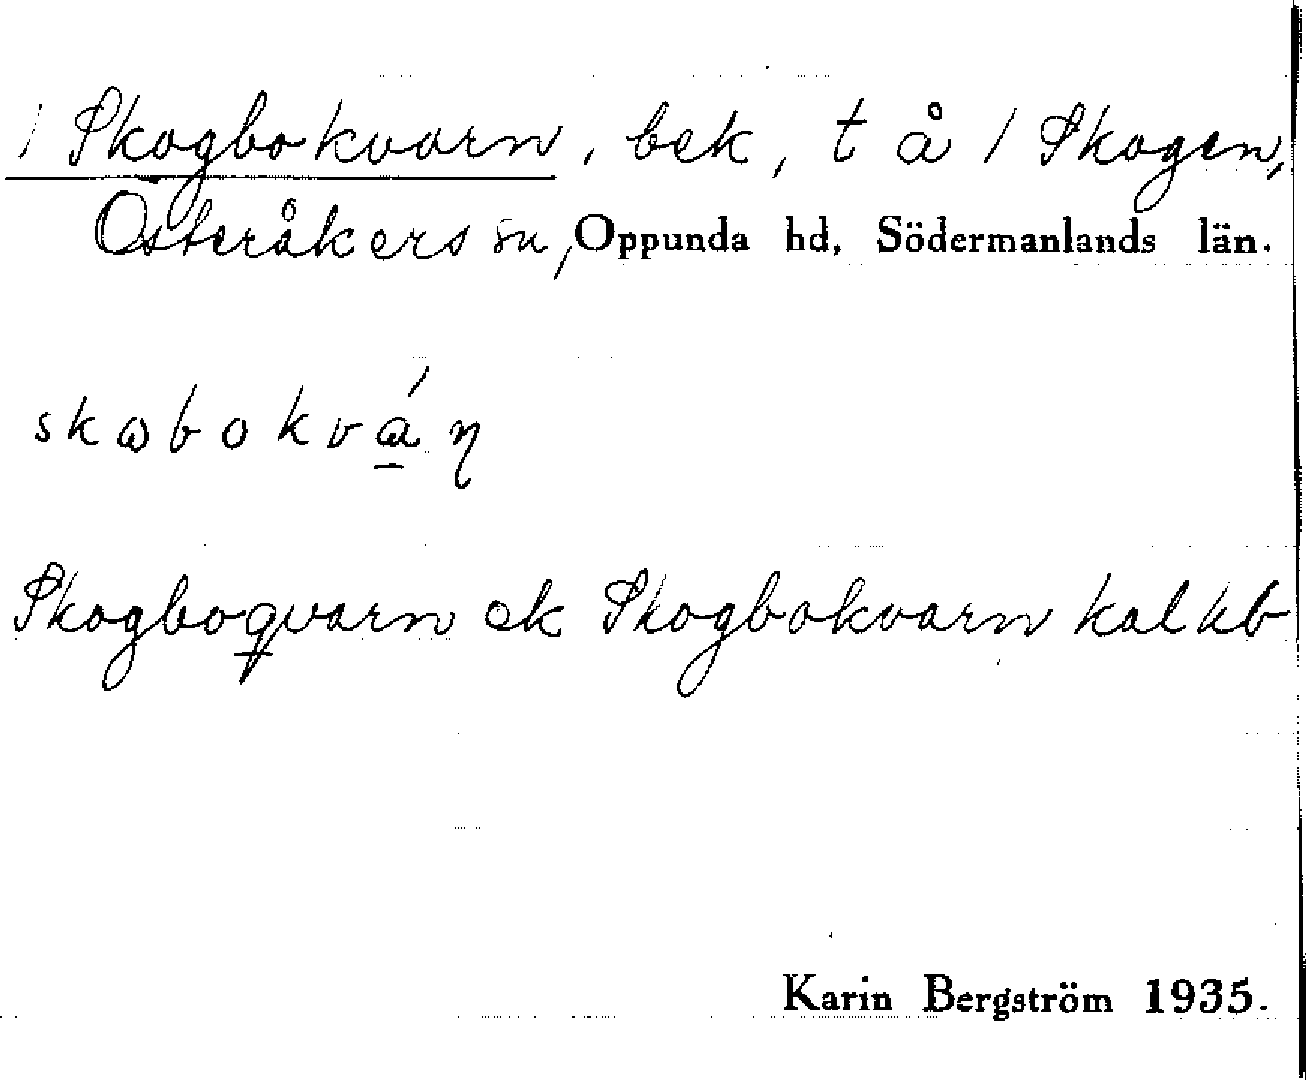 1 Skogbokvarn, bek, t å 1 Skogen,
Österåkers sn, Oppunda hd, Södermanlands län.
skωbokvá̱ɳ
Skogboqvarn ek Skogbokvarn kalkb
Karin Bergström 1935.